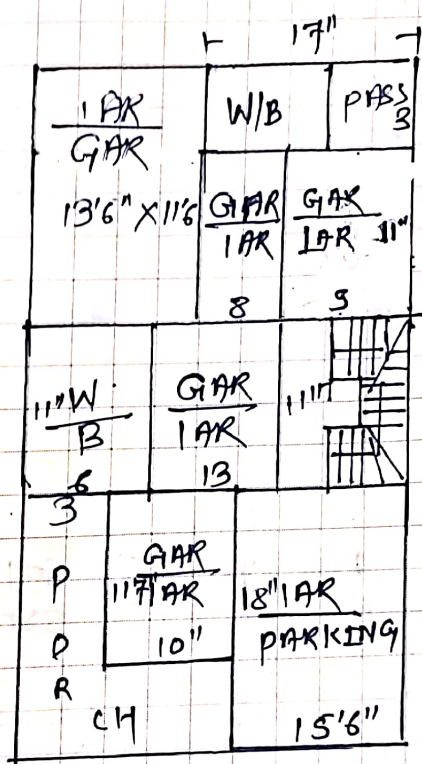 17"
1 AR
GAR
13'6" X 11'6
W/B
PASS
3
GAR
1 AR
8
GAR
1 AR 11"
9
11" W
B
6
GAR
1 AR
13
11"
3
P
O
R
CH
GAR
11'7" 1 AR
10"
18" 1 AR
PARKING
15'6"